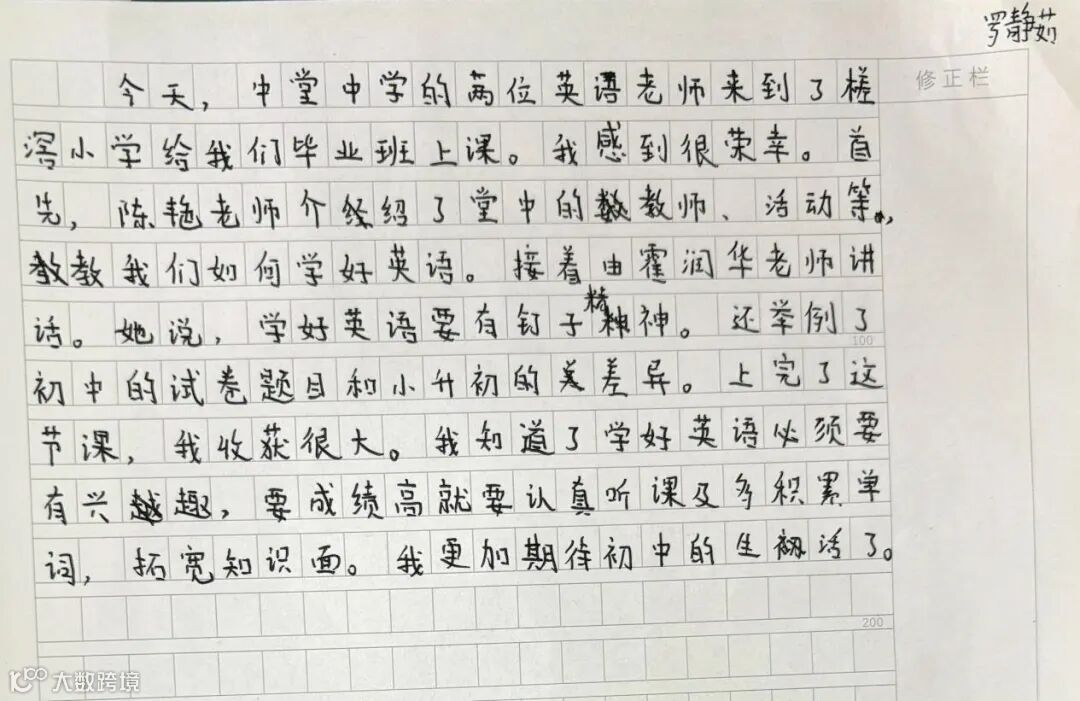 罗静茹
修正栏
今天，中堂中学的两位英语老师来到了槎
滘小学给我们毕业班上课。我感到很荣幸。首
先，陈艳老师介绍了堂中的教师、活动等，
教我们如何学好英语。接着由霍润华老师讲
话。她说，学好英语要有钉子精神。还举例了
100
初中的试卷题目和小升初的差异。上完了这
节课，我收获很大。我知道了学好英语必须要
有兴趣，要成绩高就要认真听课及多积累单
词，拓宽知识面。我更加期待初中的生活了。
200
大数跨境